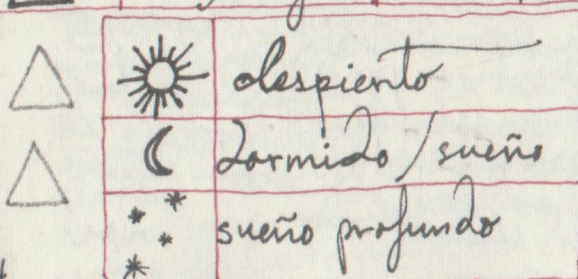 despierto
dormido / sueño
sueño profundo